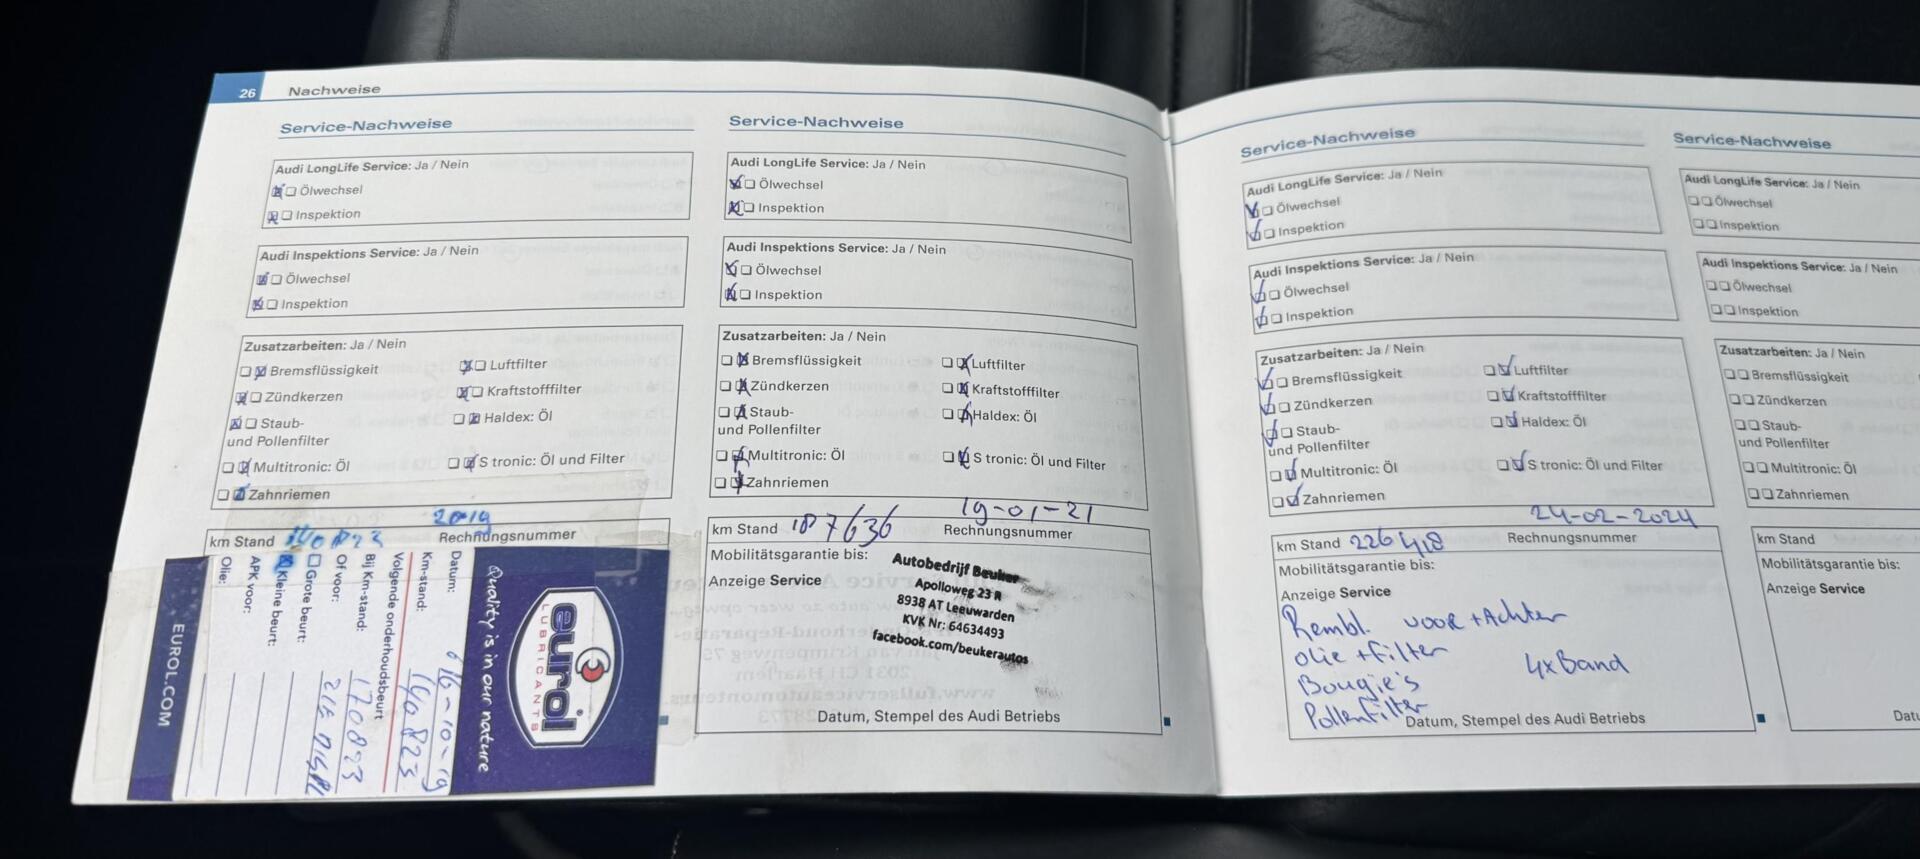 26 Nachweise
Service-Nachweise
Audi LongLife Service: Ja / Nein
Ölwechsel
Inspektion
Audi Inspektions Service: Ja / Nein
Ölwechsel
Inspektion
Zusatzarbeiten: Ja / Nein
Bremsflüssigkeit
Luftfilter
Zündkerzen
Kraftstofffilter
Staub-
und Pollenfilter
Haldex: Öl
Multitronic: Öl
S tronic: Öl und Filter
Zahnriemen
2019
km Stand
Rechnungsnummer
eurol
LUBRICANTS
Quality is in our nature
Datum: 16-10-19
Km-stand: 140823
Volgende onderhoudsbeurt
Bij Km-stand: 170823
Of voor:
Grote beurt:
Kleine beurt:
APK voor:
Olie:
EUROL.COM
Service-Nachweise
Audi LongLife Service: Ja / Nein
Ölwechsel
Inspektion
Audi Inspektions Service: Ja / Nein
Ölwechsel
Inspektion
Zusatzarbeiten: Ja / Nein
Bremsflüssigkeit
Luftfilter
Zündkerzen
Kraftstofffilter
Staub-
und Pollenfilter
Haldex: Öl
Multitronic: Öl
S tronic: Öl und Filter
Zahnriemen
19-01-21
km Stand 187636
Rechnungsnummer
Mobilitätsgarantie bis:
Anzeige Service
Autobedrijf Beuker
Apolloweg 23 R
8938 AT Leeuwarden
KVK Nr: 64634493
facebook.com/beukerautos
Datum, Stempel des Audi Betriebs
Service-Nachweise
Audi LongLife Service: Ja / Nein
Ölwechsel
Inspektion
Audi Inspektions Service: Ja / Nein
Ölwechsel
Inspektion
Zusatzarbeiten: Ja / Nein
Bremsflüssigkeit
Luftfilter
Zündkerzen
Kraftstofffilter
Staub-
und Pollenfilter
Haldex: Öl
Multitronic: Öl
S tronic: Öl und Filter
Zahnriemen
24-02-2024
km Stand 226418
Rechnungsnummer
Mobilitätsgarantie bis:
Anzeige Service
Rembl. voor + Achter
olie + filter
4x Band
Bougie's
Pollenfilter
Datum, Stempel des Audi Betriebs
Service-Nachweise
Audi LongLife Service: Ja / Nein
Ölwechsel
Inspektion
Audi Inspektions Service: Ja / Nein
Ölwechsel
Inspektion
Zusatzarbeiten: Ja / Nein
Bremsflüssigkeit
Zündkerzen
Staub-
und Pollenfilter
Multitronic: Öl
Zahnriemen
km Stand
Mobilitätsgarantie bis:
Anzeige Service